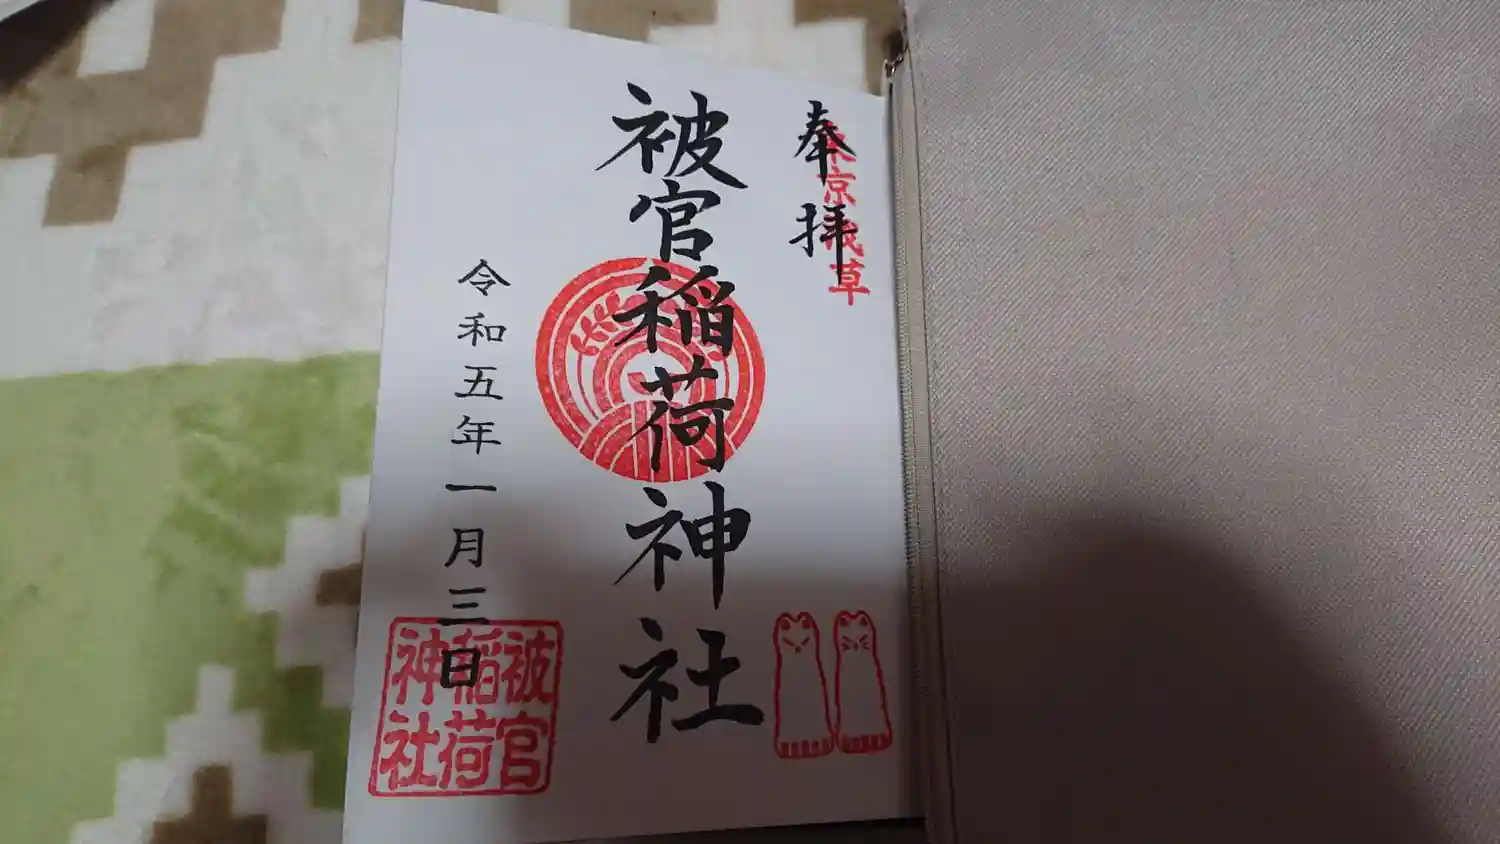 奉拝
東京浅草
被官稲荷神社
令和五年一月三日
被官
稲荷
神社